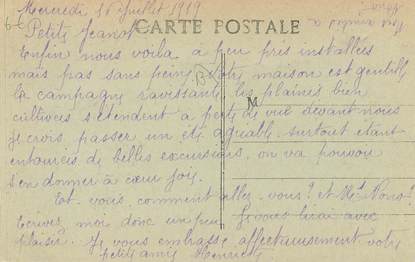 Mercredi 16 Juillet 1919
CARTE POSTALE
Petite Jeanne
Enfin nous voila à peu près installées
mais pas sans peine. Notre maison est gentille
la campagne ravissante, les plaines bien
cultivées s'etendent a perte de vue devant nous
Je crois passer un été agréable surtout étant
entourées de belles excursions, on va pouvoir
s'en donner à cœur joie.
Et vous, comment allez-vous? et
Ecrivez moi donc un peu, je vous lirai avec
plaisir. Je vous embrasse affectueusement votre
petite amie Henriette
M